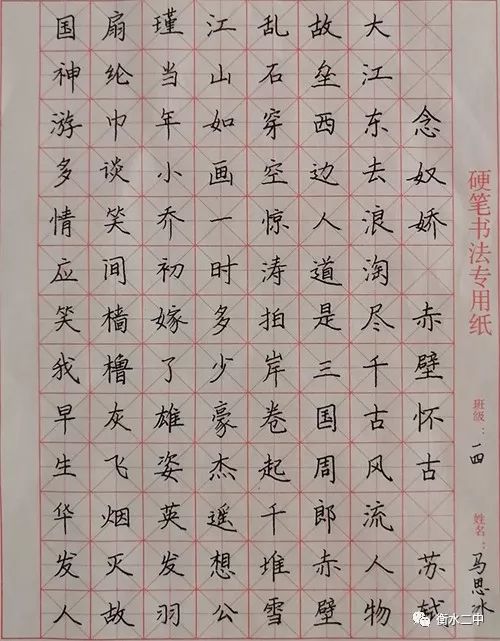 硬笔书法专用纸 班级：一四 姓名：马思冰
念奴娇 赤壁怀古 苏轼
大江东去浪淘尽千古风流人物
故垒西边人道是三国周郎赤壁
乱石穿空惊涛拍岸卷起千堆雪
江山如画一时多少豪杰遥想公
瑾当年小乔初嫁了雄姿英发羽
扇纶巾谈笑间樯橹灰飞烟灭故
国神游多情应笑我早生华发人
衡水二中